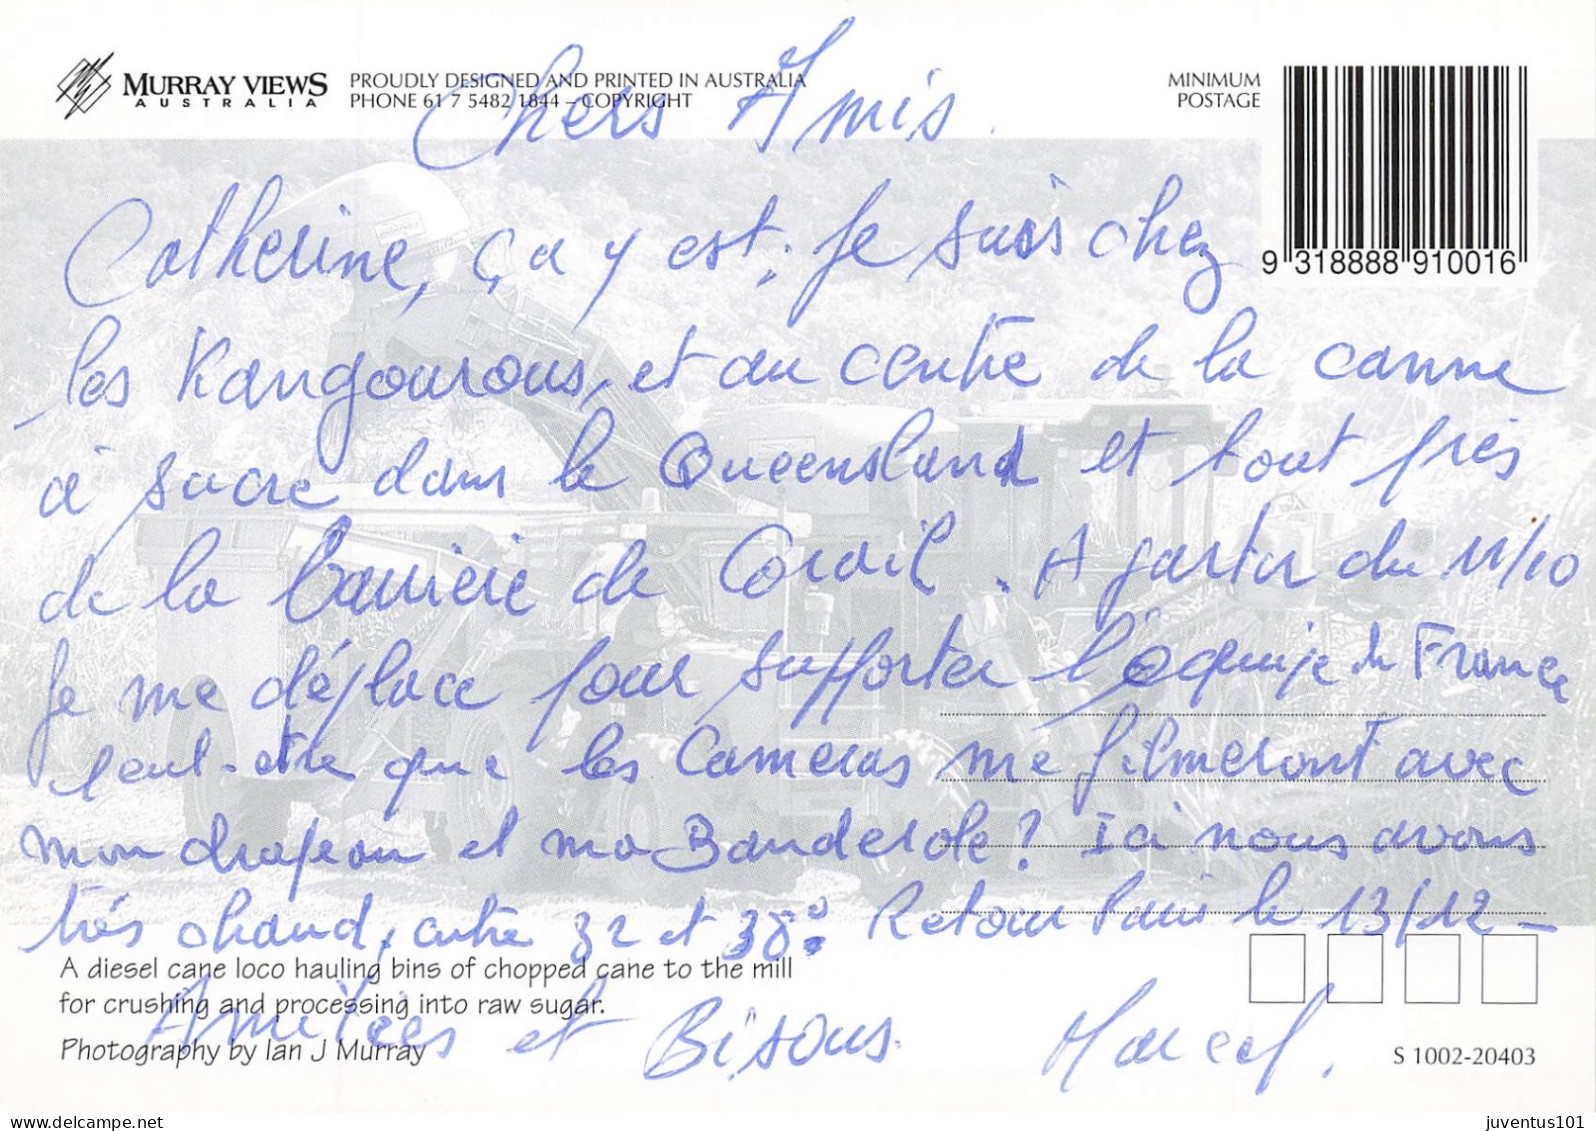 MURRAY VIEWS
AUSTRALIA
PROUDLY DESIGNED AND PRINTED IN AUSTRALIA
PHONE 61 7 5482 1844 – COPYRIGHT
MINIMUM
POSTAGE
9 318888 910016
Chers Amis.
Catherine, ça y est, je suis chez
les Kangourous, et au centre de la canne
à sucre dans le Queensland et tout près
de la barrière de Corail. A partir du 11/10
je me déplace pour supporter l'équipe de France
peut-être que les Cameras me filmeront avec
mon drapeau et ma Banderole? Ici nous avons
très chaud, entre 32 et 38°. Retour Paris le 13/12 -
A diesel cane loco hauling bins of chopped cane to the mill
for crushing and processing into raw sugar.
Amitiées et Bisous. Marcel.
Photography by Ian J Murray
S 1002-20403
juventus101
delcampe.net